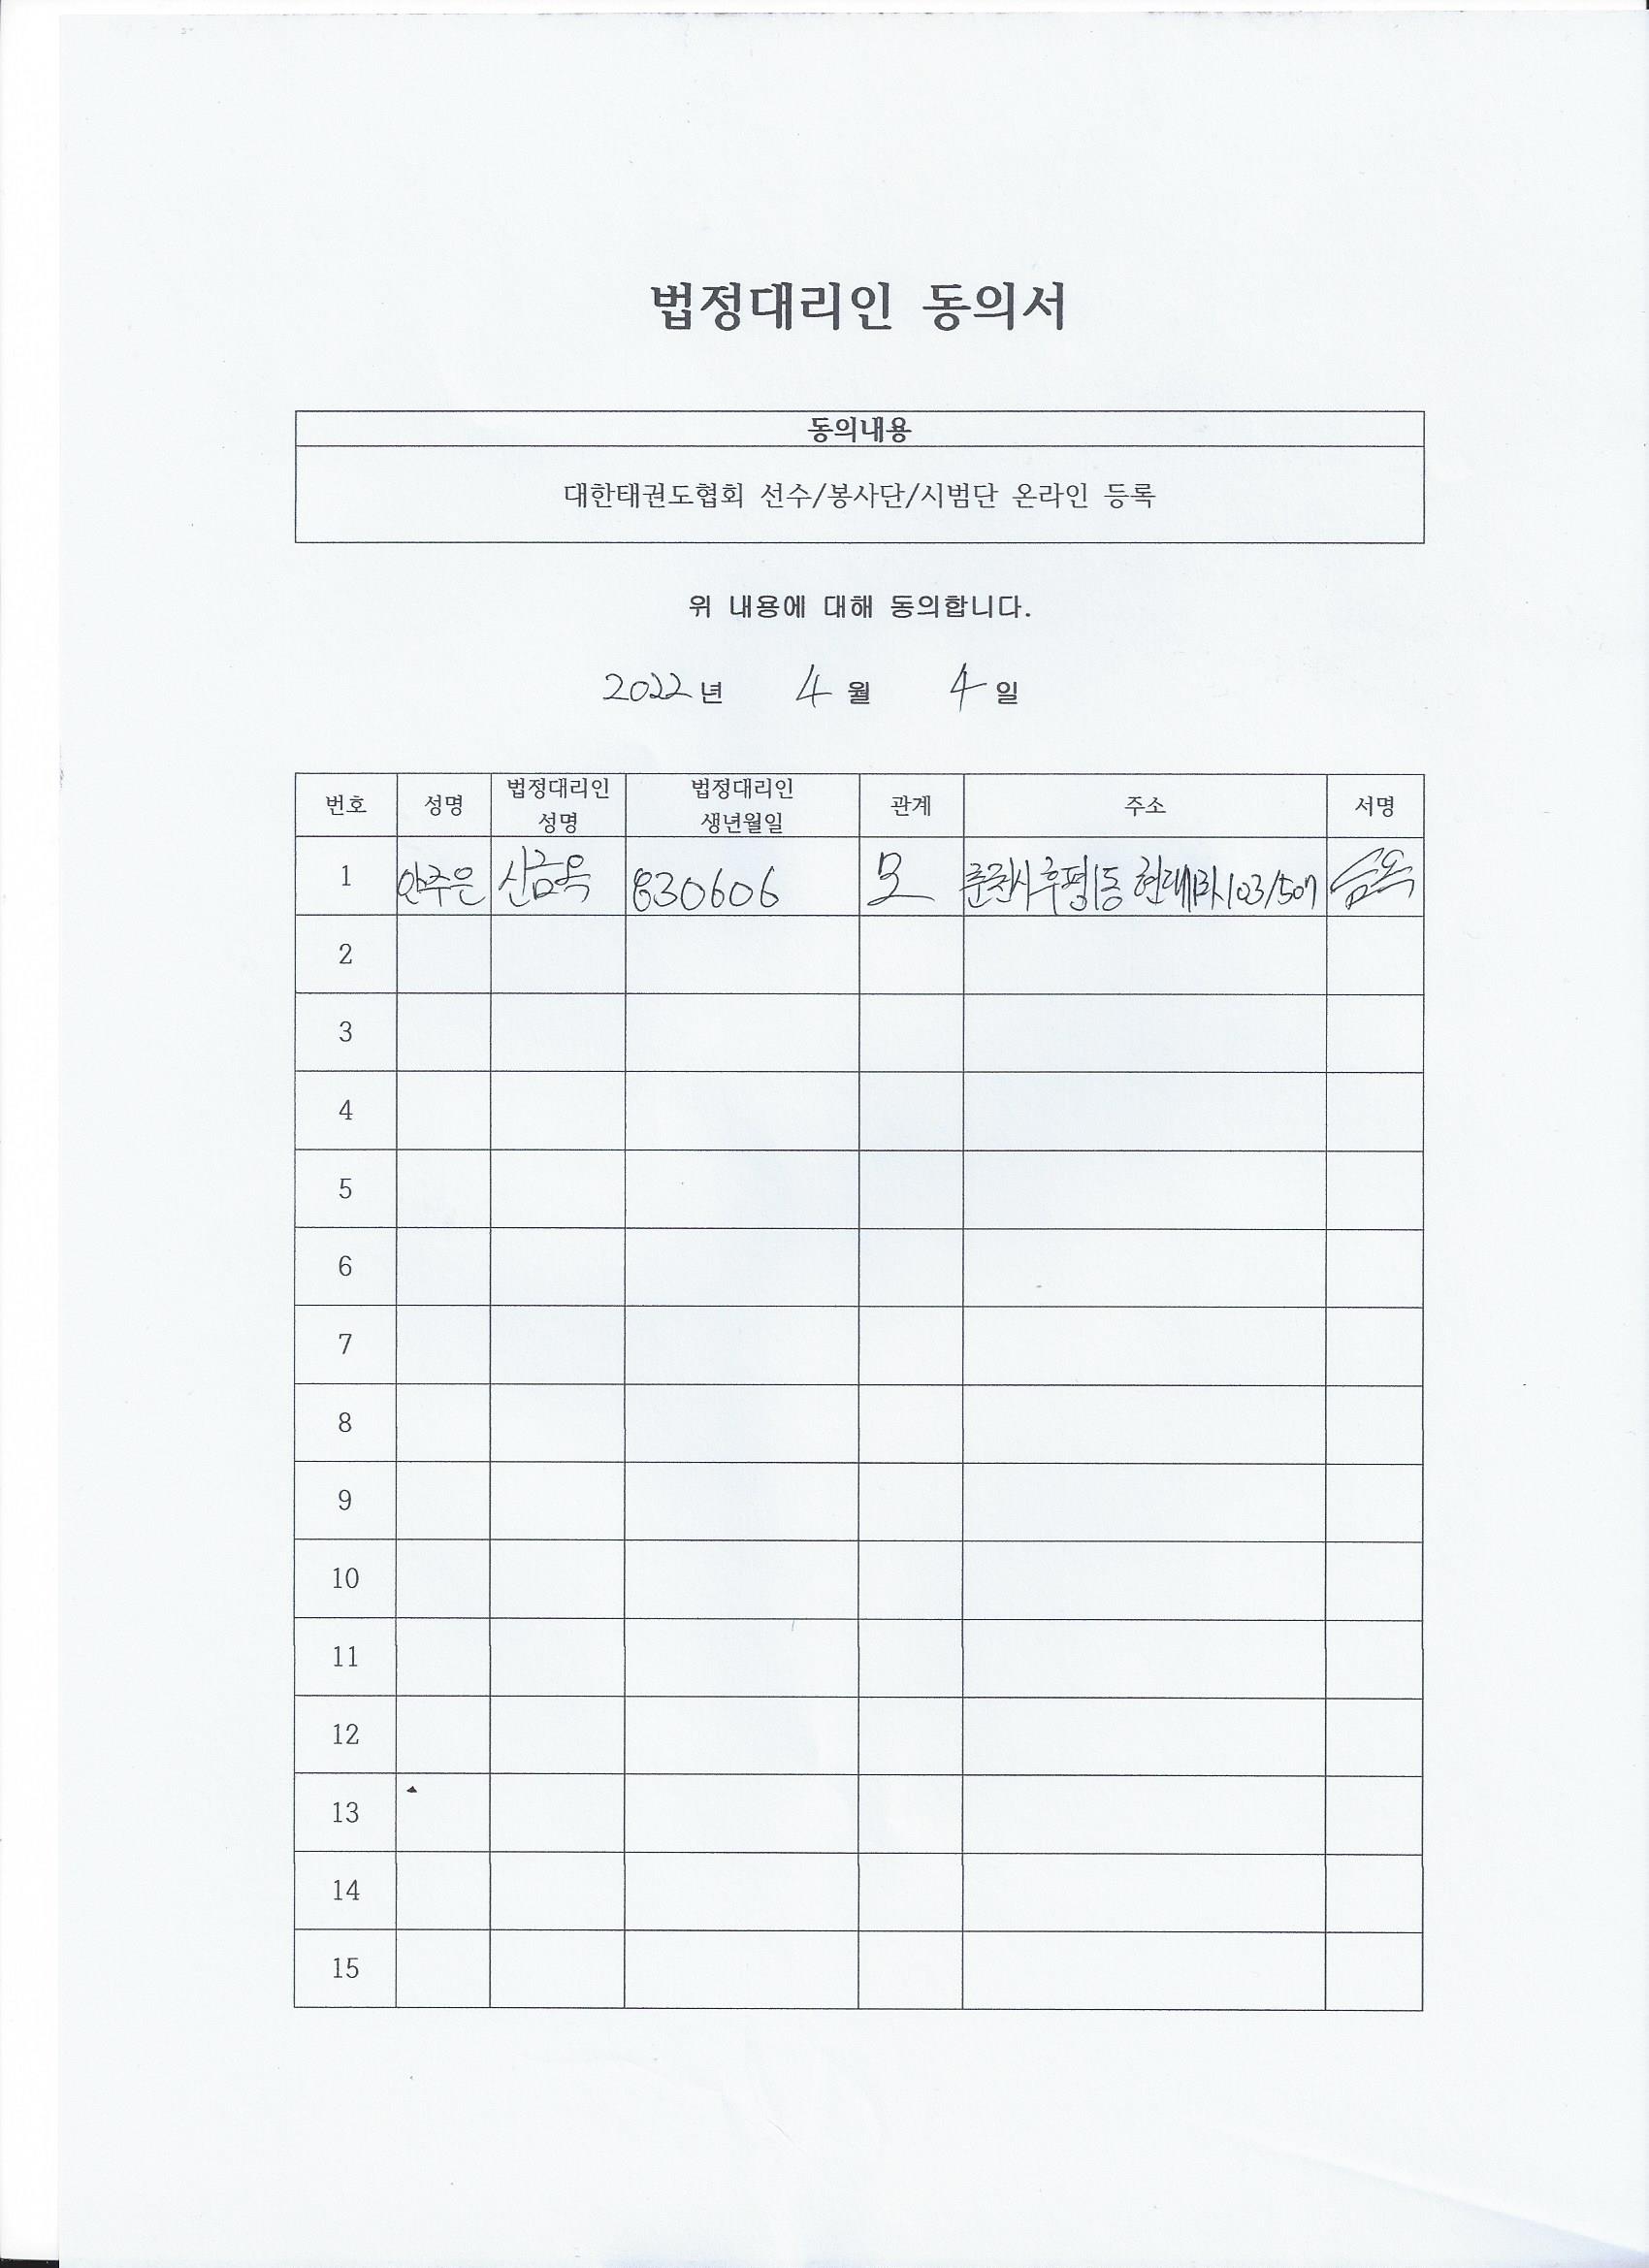 법정대리인 동의서
동의내용
대한태권도협회 선수/봉사단/시범단 온라인 등록
위 내용에 대해 동의합니다.
2022년 4월 4일
번호 성명 법정대리인 성명 법정대리인 생년월일 관계 주소 서명
1 안주은 신금옥 830606 모 춘천시 후평1동 현대 103/507 금옥
2
3
4
5
6
7
8
9
10
11
12
13
14
15